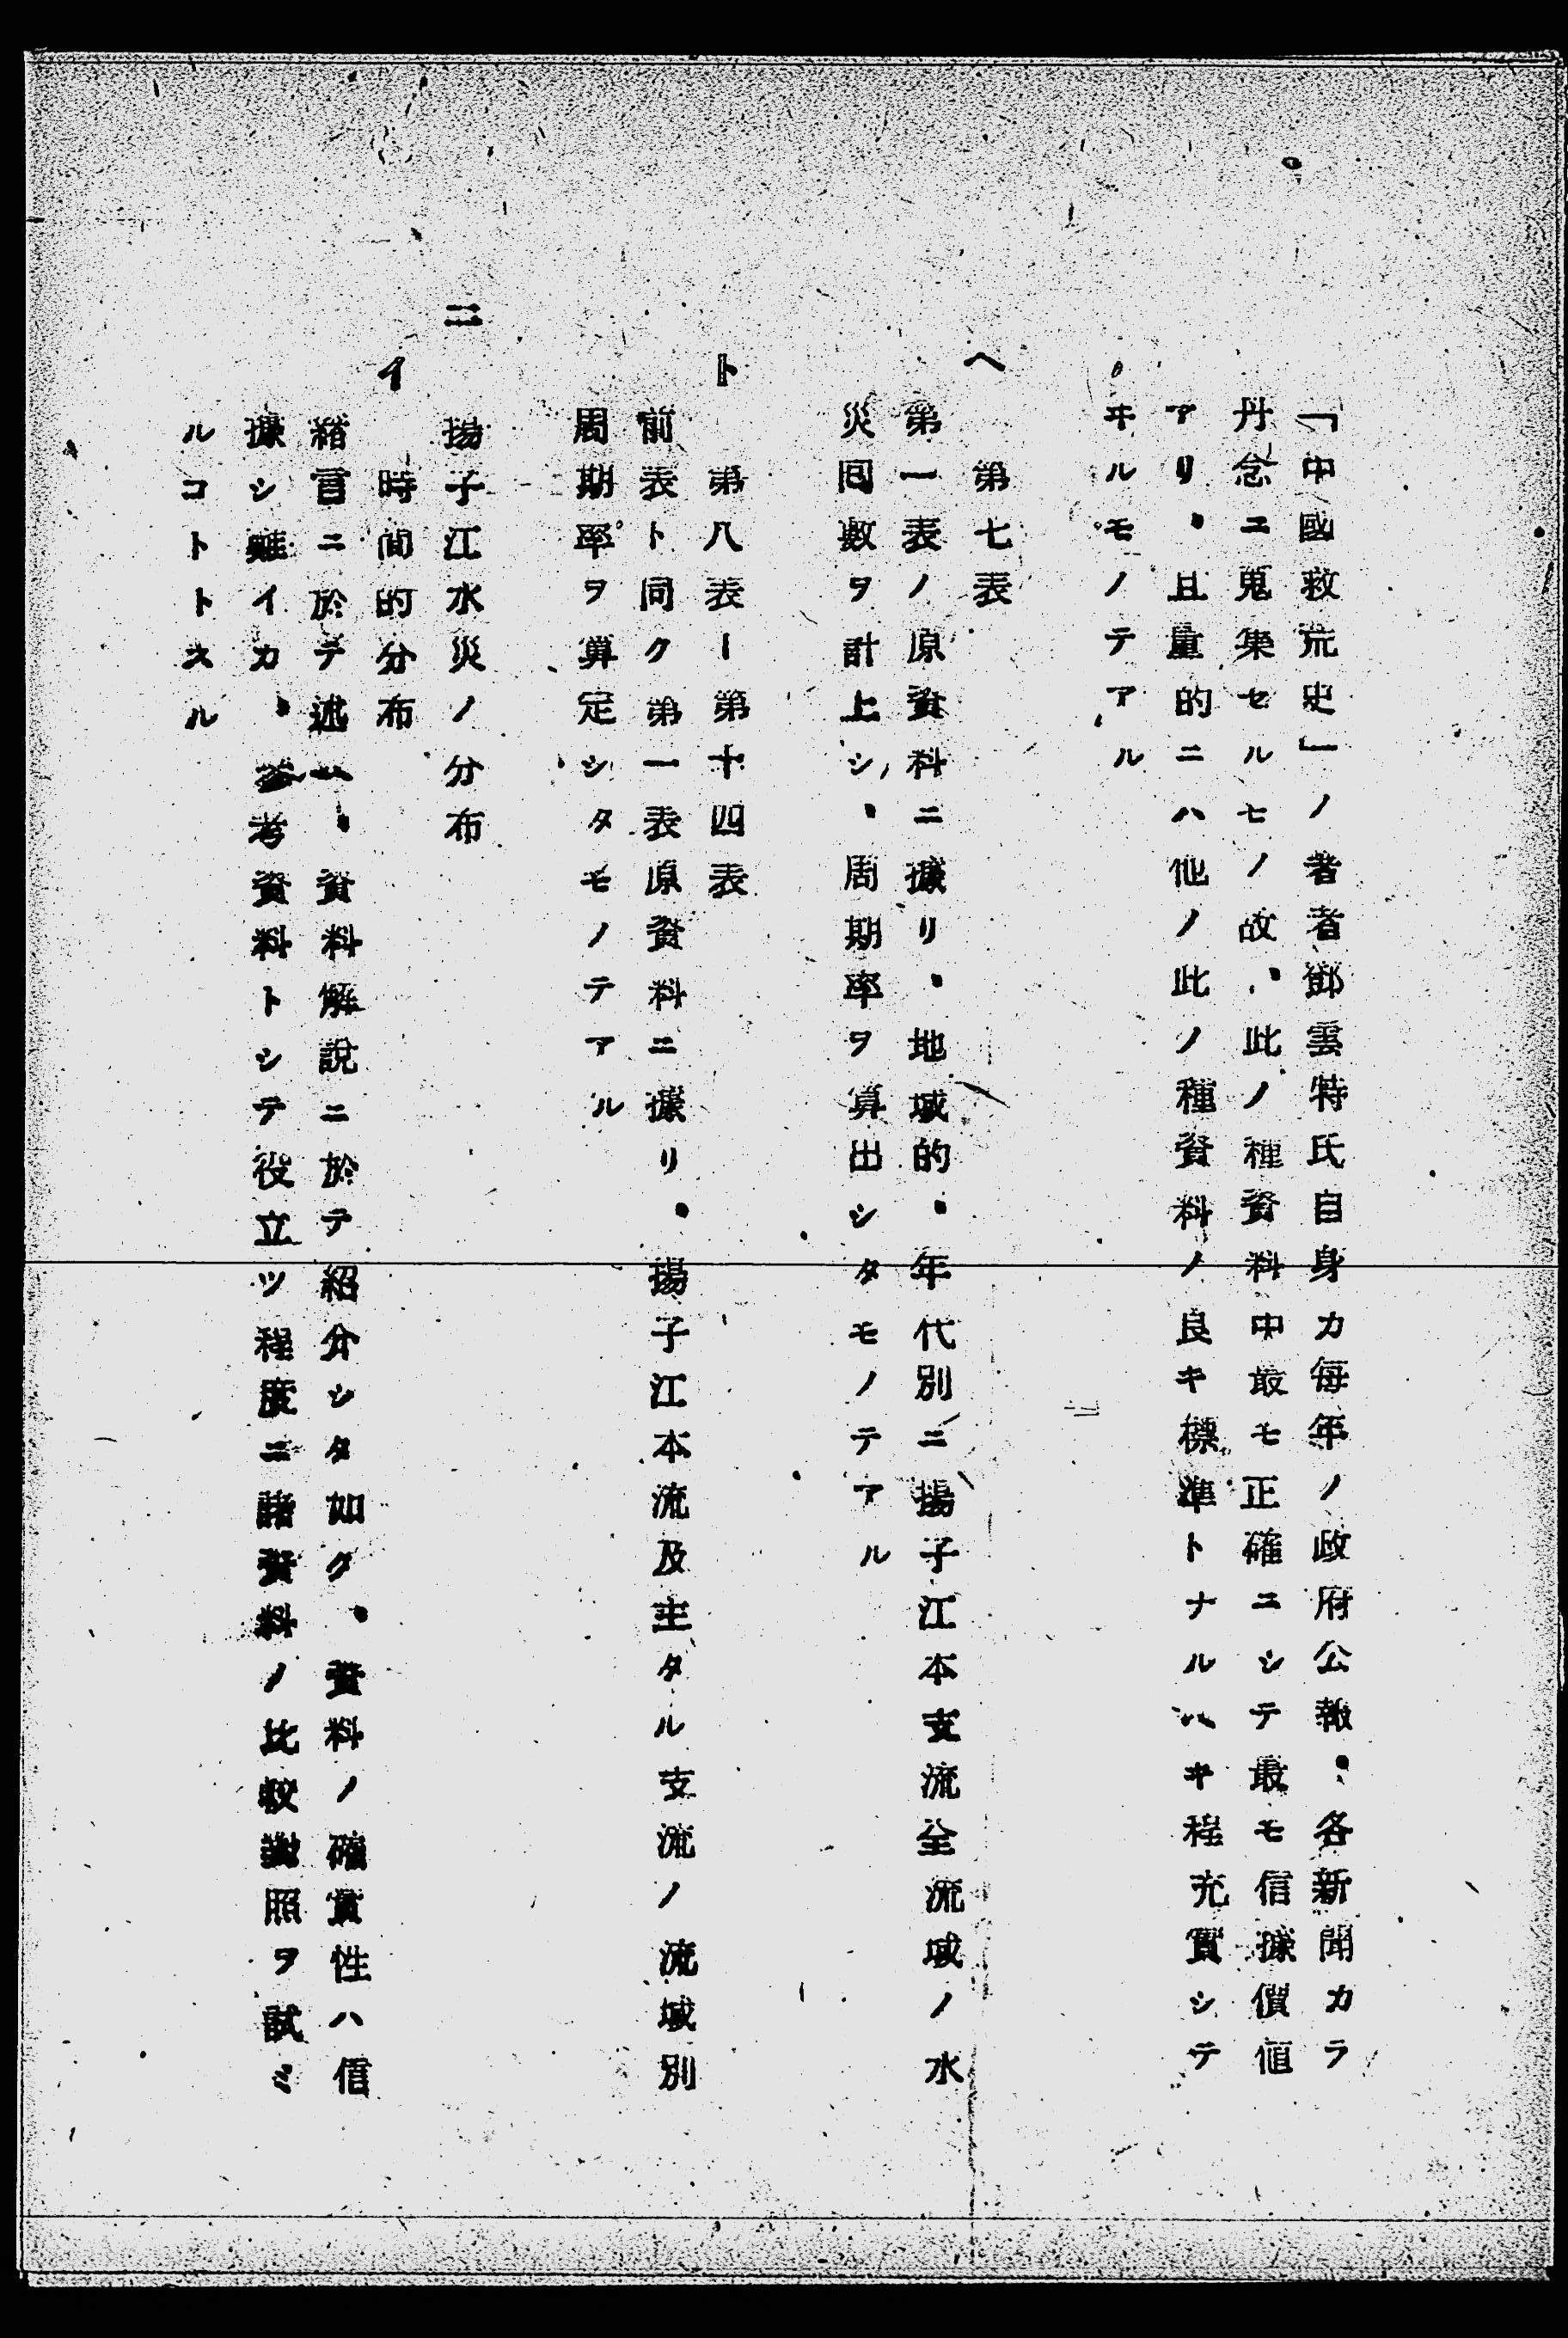 「中國救荒史」ノ著者鄧雲特氏自身カ毎年ノ政府公報、各新聞カラ
丹念ニ蒐集セルモノ故、此ノ種資料中最モ正確ニシテ最モ信據價値
アリ、且量的ニハ他ノ此ノ種資料ノ良キ標準トナルヘキ程充實シテ
ヰルモノテアル
ヘ 第七表
第一表ノ原資料ニ據リ、地域的、年代別ニ揚子江本支流全流域ノ水
災囘數ヲ計上シ、周期率ヲ算出シタモノテアル
ト 第八表ー第十四表
前表ト同ク第一表原資料ニ據リ、揚子江本流及主タル支流ノ流域別
周期率ヲ算定シタモノテアル
二 揚子江水災ノ分布
イ 時間的分布
緒言ニ於テ述ヘ、資料解說ニ於テ紹介シタ如ク、資料ノ確實性ハ信
據シ難イカ、參考資料トシテ役立ツ程度ニ諸資料ノ比較對照ヲ試ミ
ルコトトスル